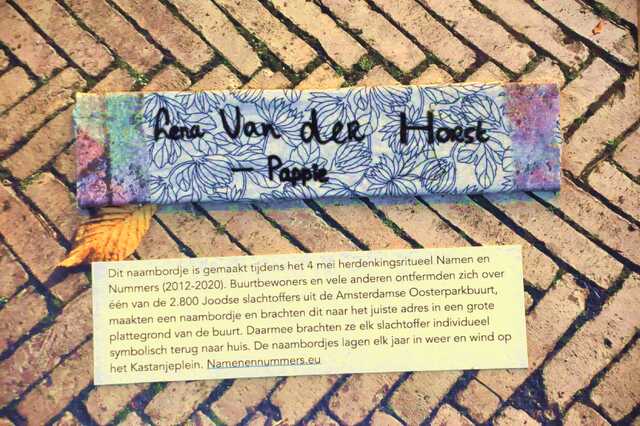 Lena Van der Horst
- Pappie
Dit naambordje is gemaakt tijdens het 4 mei herdenkingsritueel Namen en
Nummers (2012-2020). Buurtbewoners en vele anderen ontfermden zich over
één van de 2.800 Joodse slachtoffers uit de Amsterdamse Oosterparkbuurt,
maakten een naambordje en brachten dit naar het juiste adres in een grote
plattegrond van de buurt. Daarmee brachten ze elk slachtoffer individueel
symbolisch terug naar huis. De naambordjes lagen elk jaar in weer en wind op
het Kastanjeplein. Namenennummers.eu